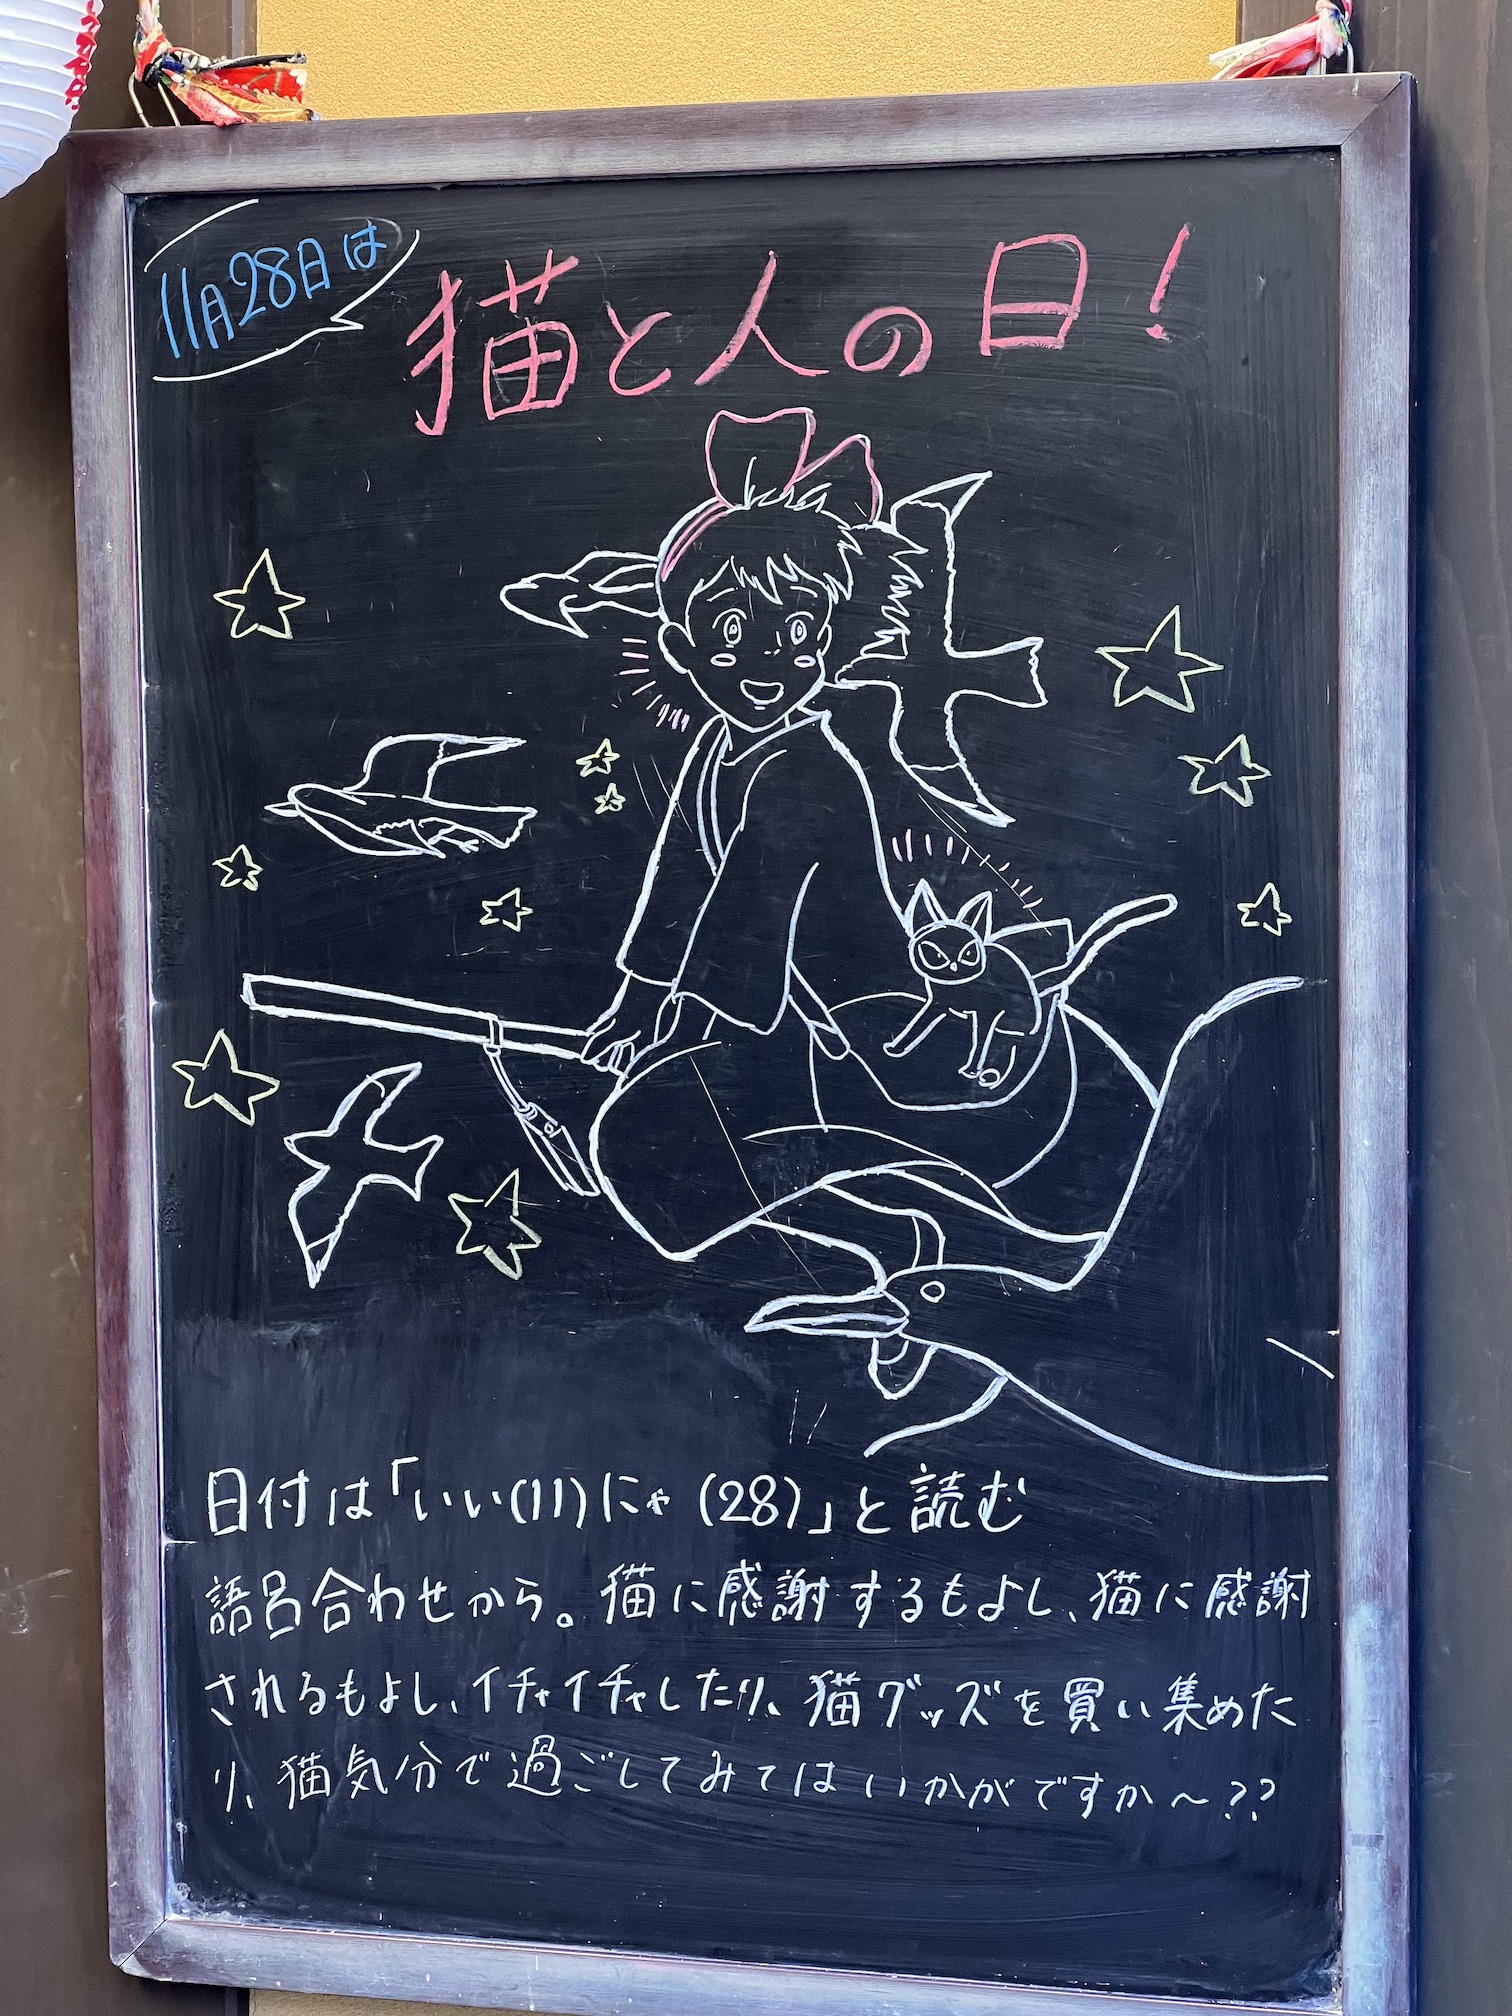 11月28日は
猫と人の日!
日付は「いい(11)にゃ(28)」と読む
語呂合わせから。猫に感謝するもよし、猫に感謝
されるもよし、イチャイチャしたり、猫グッズを買い集めた
り、猫気分で過ごしてみてはいかがですか〜??